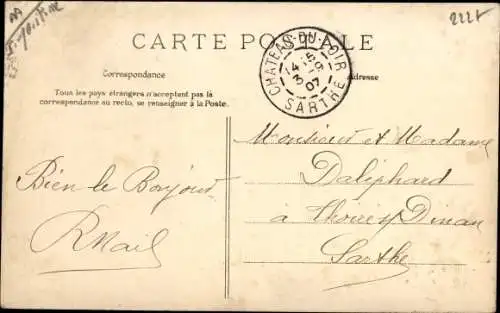 2221
CARTE POSTALE
CHATEAU-DU-LOIR
14 15
3 -9
07
SARTHE
Correspondance
Adresse
Tous les pays étrangers n'acceptent pas la
correspondance au recto, se renseigner à la Poste.
Monsieur et Madame
Daliphard
à Thoiré Dinan
Sarthe
Bien le Bonjour